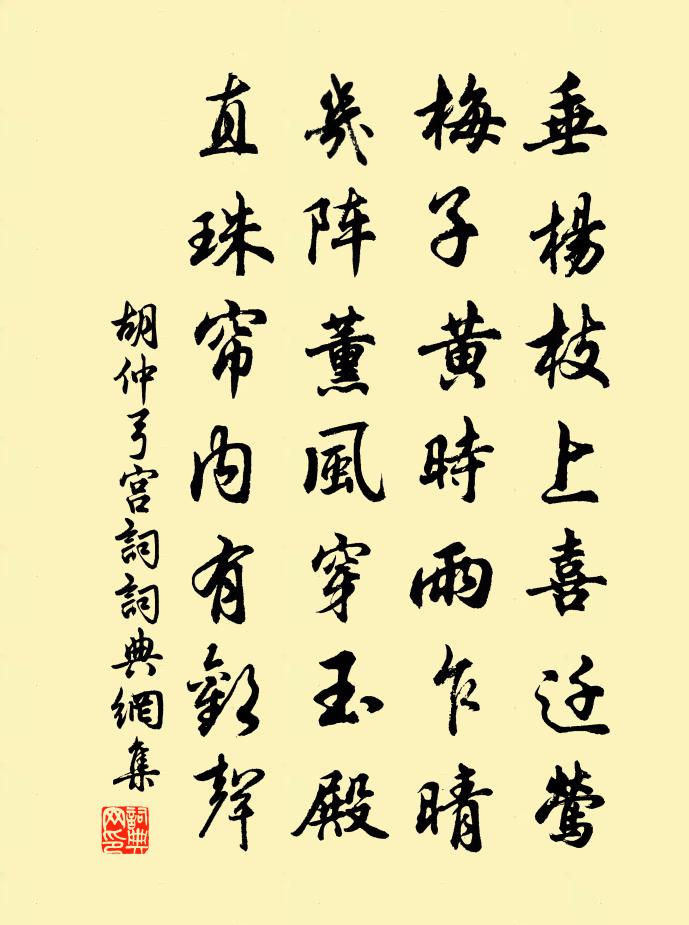 垂楊枝上喜迁鶯
梅子黄時雨乍晴
幾阵薰風穿玉殿
直珠帘内有歡聲
胡仲弓宫詞詞典網集
詞典网印